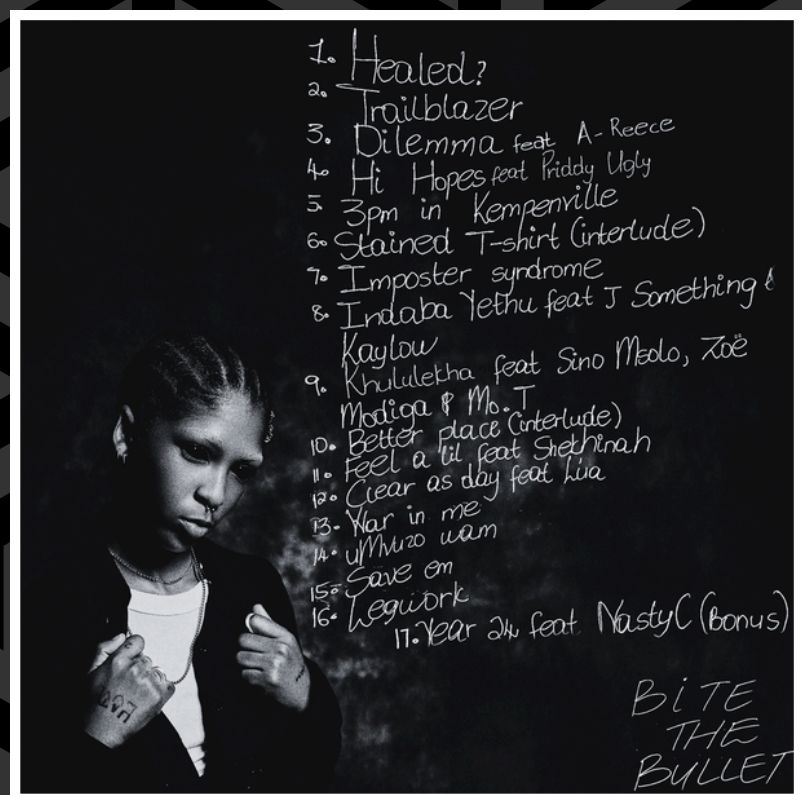 1. Healed?
2. Trailblazer
3. Dilemma feat A-Reece
4. Hi Hopes feat Priddy Ugly
5. 3pm in Kempenville
6. Stained T-shirt (interlude)
7. Imposter syndrome
8. Indaba Yethu feat J Something &
Kaylow
9. Khululekha feat Sino Msolo, Zoë
Modiga & Mo.T
10. Better place (interlude)
11. Feel a lil feat Shekhinah
12. Clear as day feat Lua
13. War in me
14. uMvuzo wam
15. Save em
16. Legwork
17. Year 24 feat Nasty C (Bonus)
BiTE
THE
BULLET